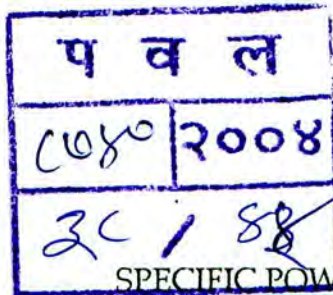 प व ल
८७४० २००४
३८ /
SPECIFIC POW